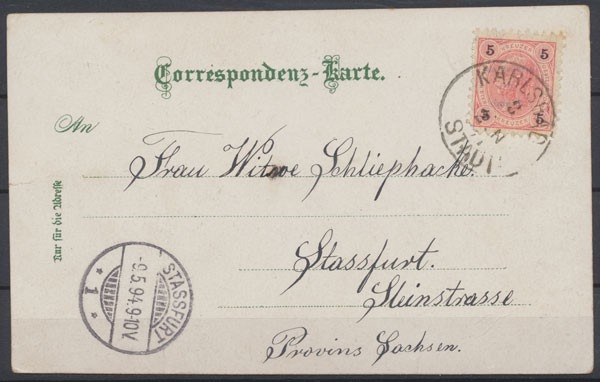 Correspondenz-Karte.
5 KREUZER 5
5 5
KARLSBAD
STADT
An
Frau Witwe Schliephacke.
Nur für die Adresse
Stassfurt.
Steinstrasse
Provins Sachsen.
STASSFURT
-9.5.94.9-10V.
* 1 *